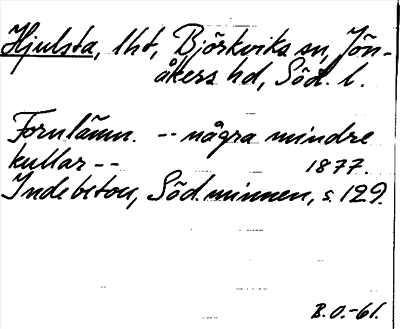 Hjulsta, lht, Björkviks sn, Jön-
åkers hd, Söd. l.
Fornlämn. -- några mindre
kullar --
1877.
Indebetou, Söd. minnen, s. 129.
B.O.-61.